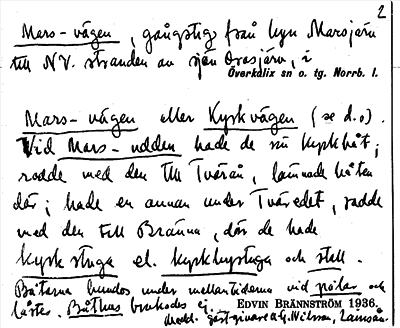 2
Mars-vägen, gångstig från byn Marsjärv
till NV. stranden av sjön Orasjärv, i
Överkalix sn o. tg. Norrb. l.
Mars-vägen eller Kyrkvägen (se d.o).
Vid Mars-udden hade de sin kyrkbåt;
rodde med den till Tvärån, lämnade båten
där; hade en annan under Tväredet, rodde
med den till Bränna, där de hade
kyrkstuga el. kyrkhystuga och stall.
Båtarna bundos under mellantiderna vid pålar och
låstes. Båthus brukades ej.
EDVIN BRÄNNSTRÖM 1936.
Medd. gästgivare A.G. Nilsson, Lansån.